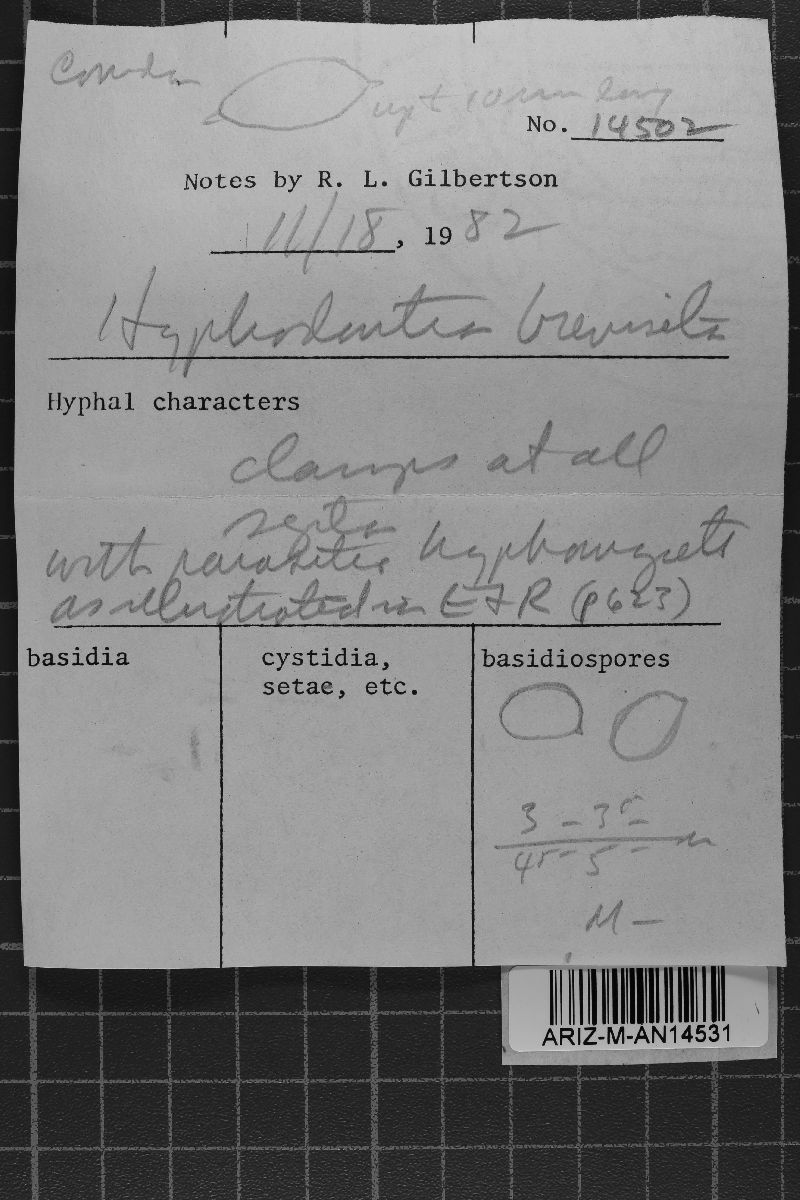 Conidia
upt 10 mm long
No. 14502
Notes by R. L. Gilbertson
11/18, 1982
Hyphodontia breviseta
Hyphal characters
clamps at all
septa
with parasitic hyphomycete
as illustrated in E & R (p 623)
basidia
cystidia,
setae, etc.
basidiospores
3 - 35
45 - 5 m
M -
ARIZ-M-AN14531